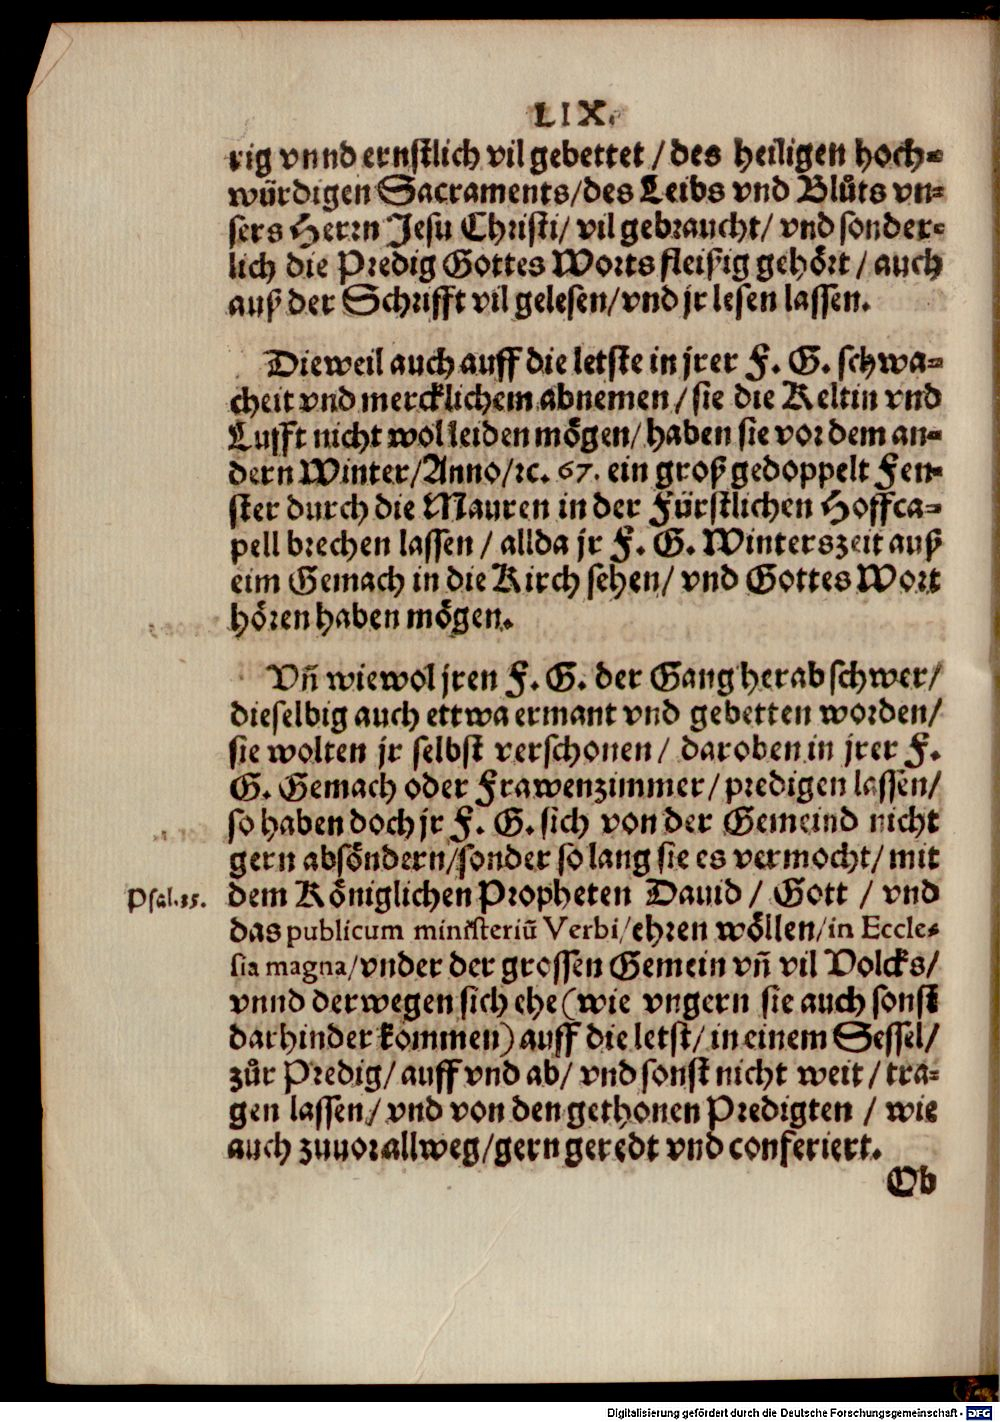 LIX.
rig vnnd ernstlich vil gebettet / des heiligen hoch-
würdigen Sacraments/des Leibs vnd Blůts vn-
sers Herrn Jesu Christi/ vil gebraucht/ vnd sonder-
lich die Predig Gottes Worts fleißig gehört / auch
auß der Schrifft vil gelesen/vnd jr lesen lassen.
Dieweil auch auff die letste in jrer F. G. schwa-
cheit vnd mercklichem abnemen / sie die Keltin vnd
Lufft nicht wol leiden mögen/ haben sie vor dem an-
dern Winter/Anno/ꝛc. 67. ein groß gedoppelt Fen-
ster durch die Mauren in der Fürstlichen Hoffca-
pell brechen lassen / allda jr F. G. Winterszeit auß
eim Gemach in die Kirch sehen/ vnd Gottes Wort
hören haben mögen.
Vñ wiewol jren F. G. der Gang herab schwer/
dieselbig auch ettwa ermant vnd gebetten worden/
sie wolten jr selbst verschonen / daroben in jrer F.
G. Gemach oder Frawenzimmer / predigen lassen/
so haben doch jr F. G. sich von der Gemeind nicht
gern absöndern/sonder so lang sie es vermocht/ mit
Psal.35. dem Königlichen Propheten Dauid / Gott / vnd
das publicum ministeriũ Verbi/ehren wöllen/in Eccle-
sia magna/vnder der grossen Gemein vñ vil Volcks/
vnnd derwegen sich ehe (wie vngern sie auch sonst
darhinder kommen) auff die letst/ in einem Sessel/
zůr Predig/ auff vnd ab/ vnd sonst nicht weit / tra-
gen lassen/ vnd von den gethonen Predigten / wie
auch zuuor allweg/gern geredt vnd conferiert.
Ob
Digitalisierung gefördert durch die Deutsche Forschungsgemeinschaft - DFG